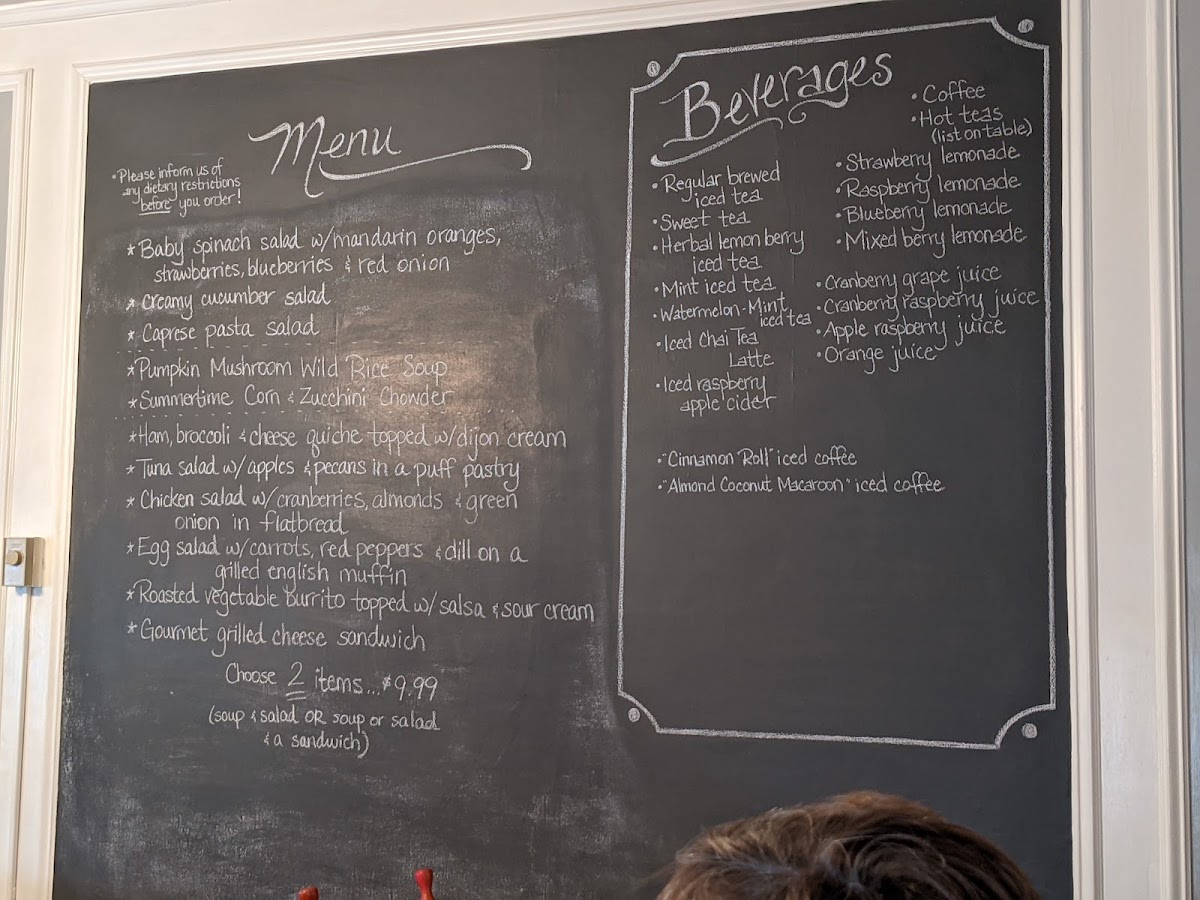 Menu
•Please inform us of
any dietary restrictions
before you order!
*Baby spinach salad w/mandarin oranges,
strawberries, blueberries & red onion
*Creamy cucumber salad
*Caprese pasta salad
*Pumpkin Mushroom Wild Rice Soup
*Summertime Corn & Zucchini Chowder
*Ham, broccoli & cheese quiche topped w/dijon cream
*Tuna salad w/apples & pecans in a puff pastry
*Chicken salad w/cranberries, almonds & green
onion in flatbread
*Egg salad w/carrots, red peppers & dill on a
grilled english muffin
*Roasted vegetable burrito topped w/salsa & sour cream
*Gourmet grilled cheese sandwich
Choose 2 items...$9.99
(soup & salad OR soup or salad
& a sandwich)
Beverages
•Regular brewed
iced tea
•Sweet tea
•Herbal lemon berry
iced tea
•Mint iced tea
•Watermelon-Mint
iced tea
•Iced Chai Tea
Latte
•Iced raspberry
apple cider
•Coffee
•Hot teas
(list on table)
•Strawberry lemonade
•Raspberry lemonade
•Blueberry lemonade
•Mixed berry lemonade
•Cranberry grape juice
•Cranberry raspberry juice
•Apple raspberry juice
•Orange juice
•"Cinnamon Roll" iced coffee
•"Almond Coconut Macaroon" iced coffee